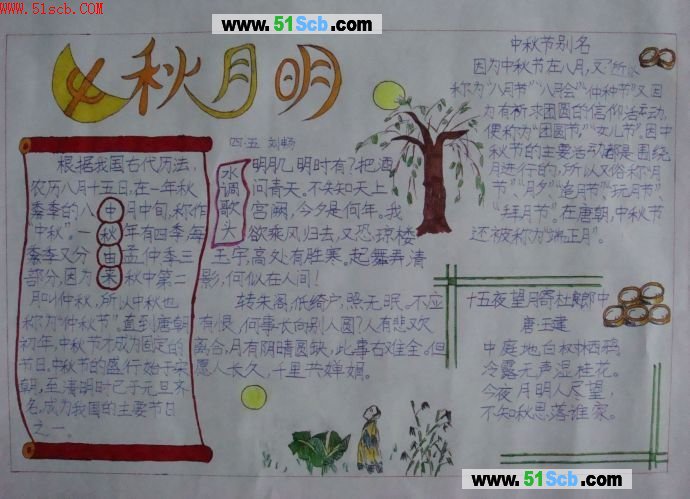 www.51scb.com
www.51Scb.com
中秋月明
四.五 刘畅
根据我国古代历法,
农历八月十五日,在一年秋
季的八月中旬,称作
“中秋”。一年有四季,每
季又分孟仲季三
部分,因为秋中第二
月叫仲秋,所以中秋也
称为“仲秋节”。直到唐朝
初年,中秋节才成为固定的
节日,中秋节的盛行始于宋
朝,至清明时已于元旦齐
名,成为我国的主要节日
之一。
中
秋
由
来
水
调
歌
头
明月几时有?把酒
问青天。不知天上
宫阙,今夕是何年。我
欲乘风归去,又恐琼楼
玉宇,高处有胜寒。起舞弄清
影,何似在人间!
转朱阁,低绮户,照无眠。不应
有恨,何事长向别人圆?人有悲欢
离合,月有阴晴圆缺,此事右难全。但
愿人长久,千里共婵娟。
中秋节别名
因为中秋节在八月,又所以
称为“八月节”“八月会”“仲秋节”又因
为有祈求团圆的信仰活动,
便称为“团圆节”“女儿节”。因中
秋节的主要活动都是围绕
月进行的,所以又俗称“月
节”“月夕”“追月节”“玩月节”、
“拜月节”。在唐朝,中秋节
还被称为“端正月”。
十五夜望月寄杜郎中
唐.王建
中庭地白树栖鸦,
冷露无声湿桂花。
今夜月明人尽望,
不知秋思落谁家。
www.51Scb.com
www.51Scb.com